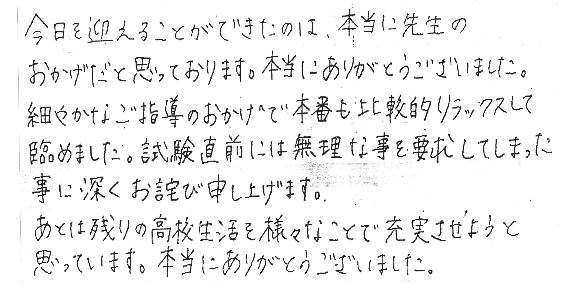 今日を迎えることができたのは、本当に先生の
おかげだと思っております。本当にありがとうございました。
細やかなご指導のおかげで本番も比較的リラックスして
臨めました。試験直前には無理な事を要求してしまった
事に深くお詫び申し上げます。
あとは残りの高校生活を様々なことで充実させようと
思っています。本当にありがとうございました。